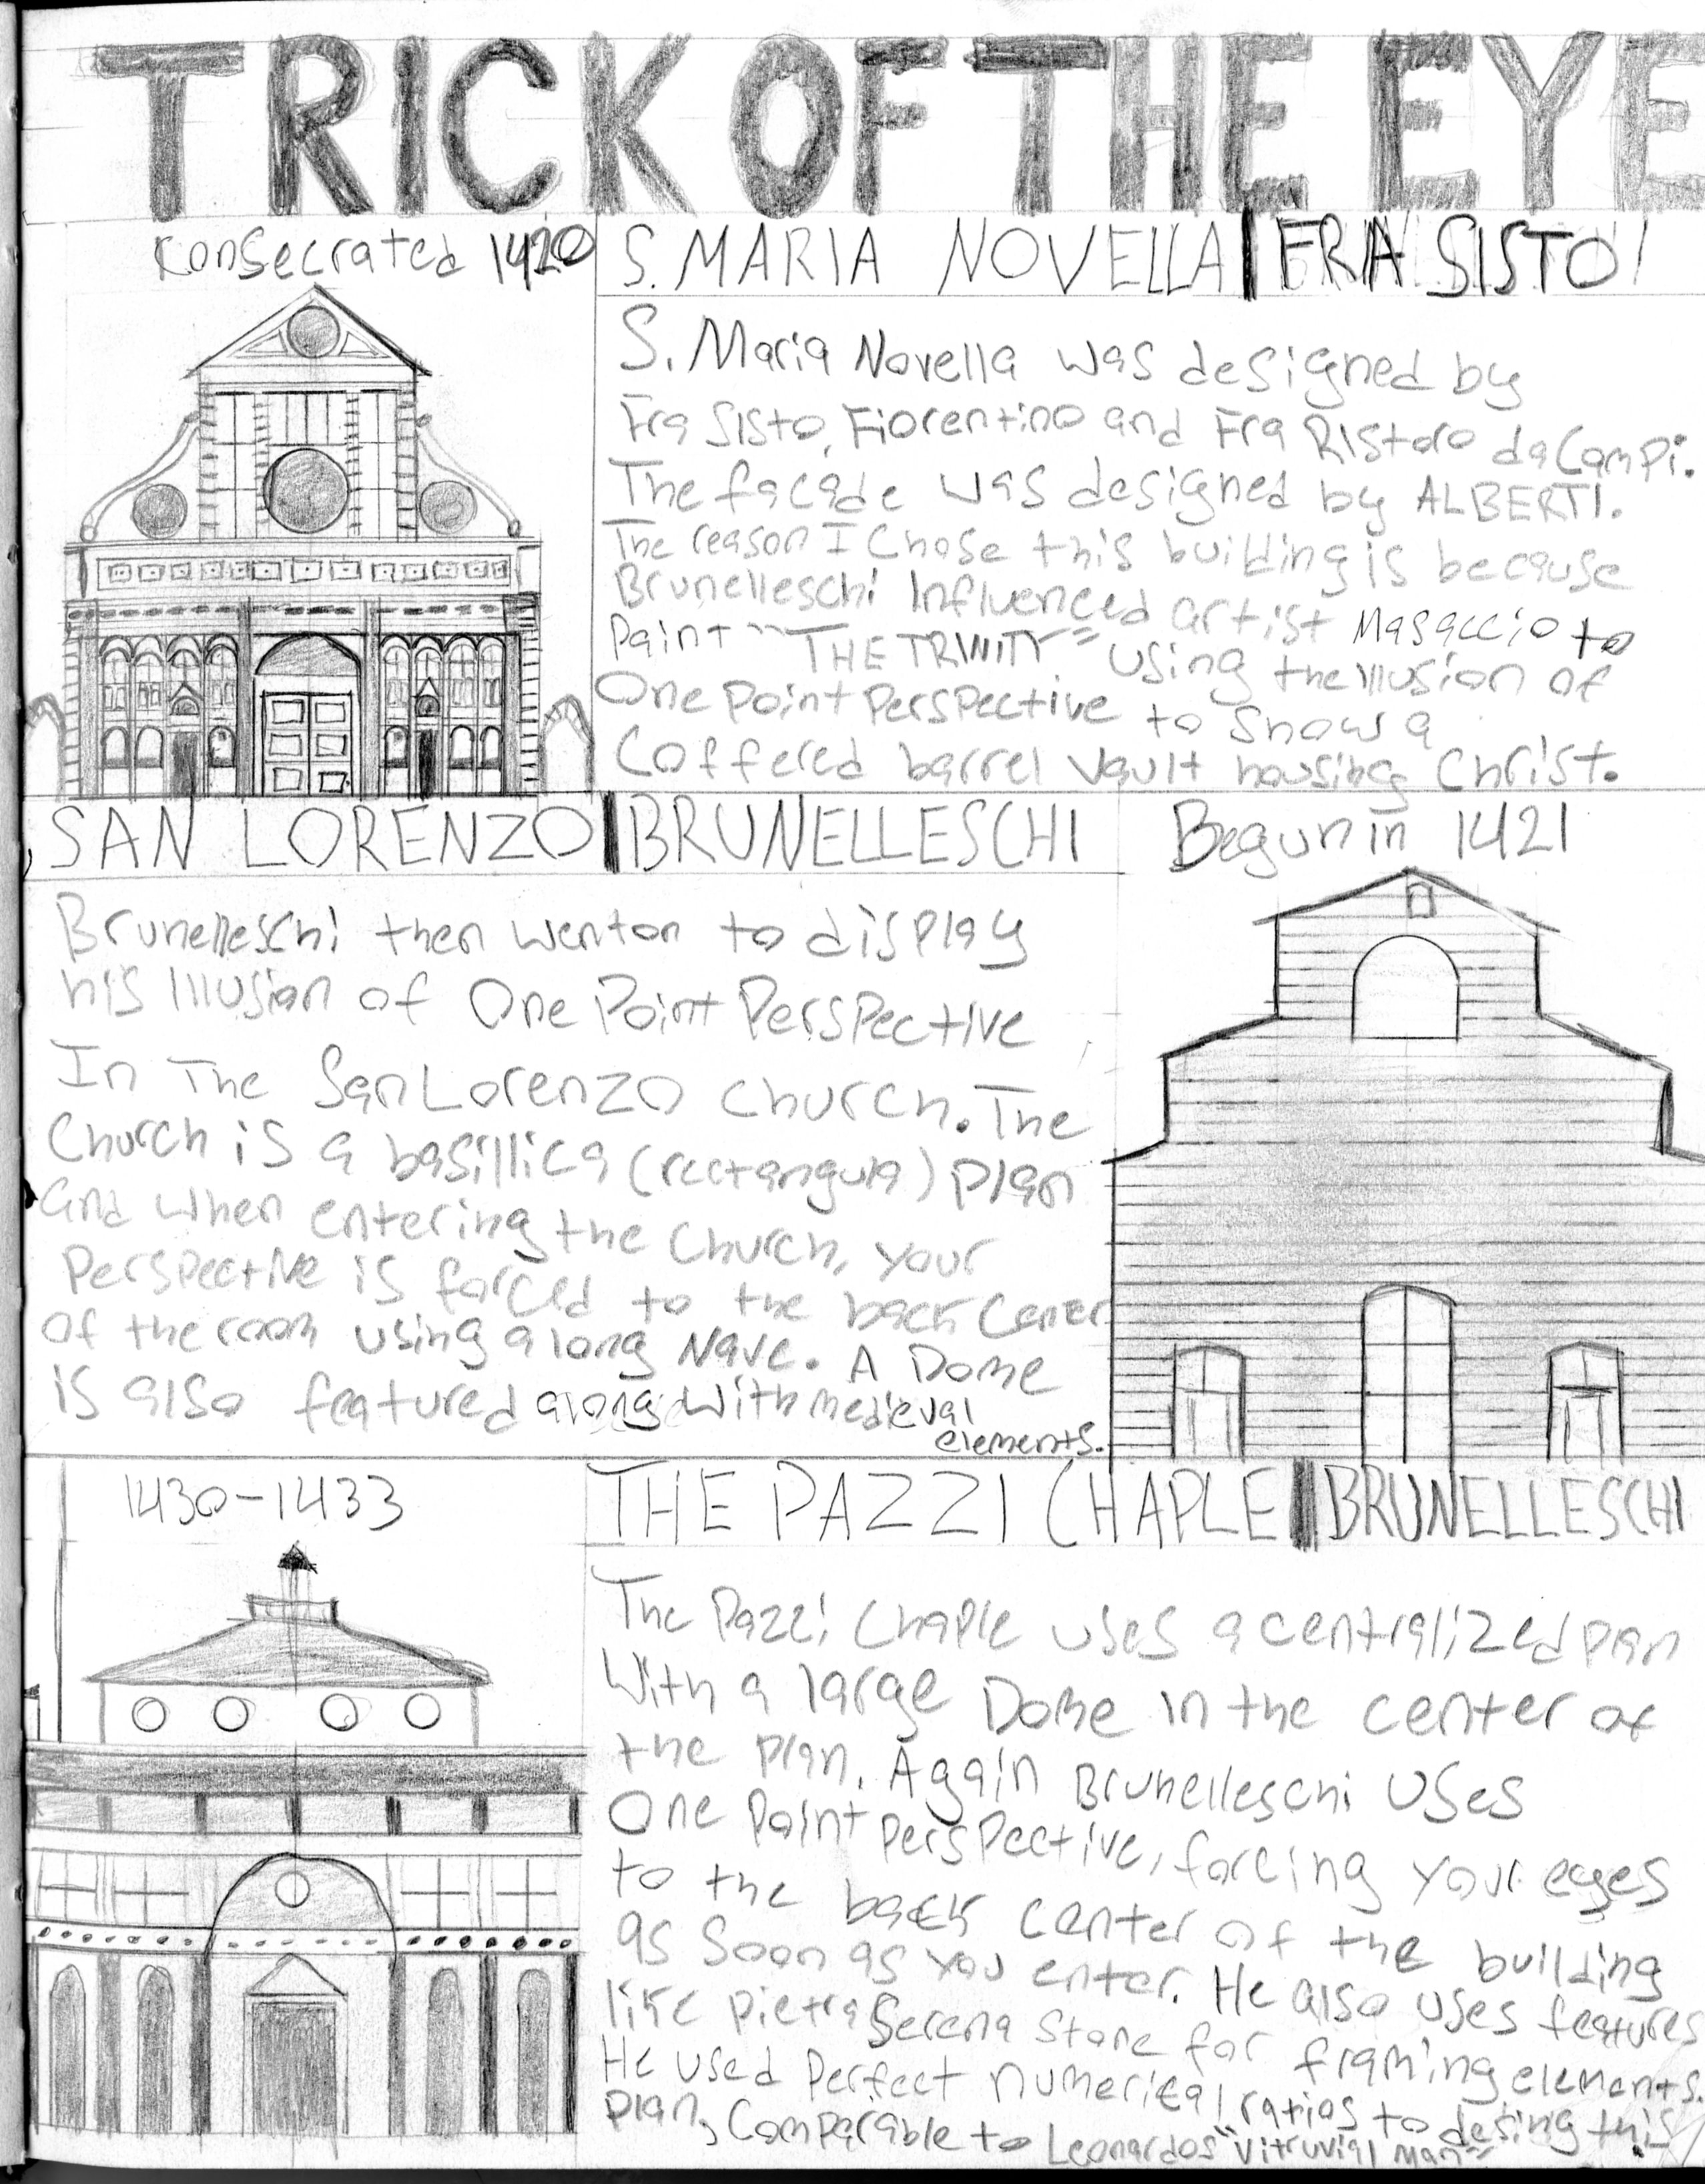 TRICK OF THE EYE
Konsecrated 1420
S. MARIA NOVELLA | FRA SISTO
S. Maria Novella was designed by
Fra Sisto, Fiorentino and Fra Ristoro da Campi.
The facade was designed by ALBERTI.
The reason I Chose this building is because
Brunelleschi Influenced artist Masaccio to
Paint "THE TRINITY" using the Illusion of
One Point Perspective to Show a
Coffered barrel Vault housing Christ.
SAN LORENZO | BRUNELLESCHI
Begun in 1421
Brunelleschi then went on to display
his Illusion of One Point Perspective
In The San Lorenzo Church. The
Church is a basillica (rectangula) plan
and when entering the Church, your
Perspective is forced to the back Cener
of the room using a long Nave. A Dome
is also featured along with medieval
elements.
1430-1433
THE PAZZI CHAPLE | BRUNELLESCHI
The Pazzi Chaple uses a centralized plan
With a large Dome in the center of
the plan. Again Brunelleschi Uses
One Point Perspective, forcing your eyes
to the back center of the building
as Soon as you enter. He also uses features
like pietra Serena Stone for framing elements.
He used Perfect numerical ratios to desing this
plan, Comparable to Leonardos "Vitruvial Man"